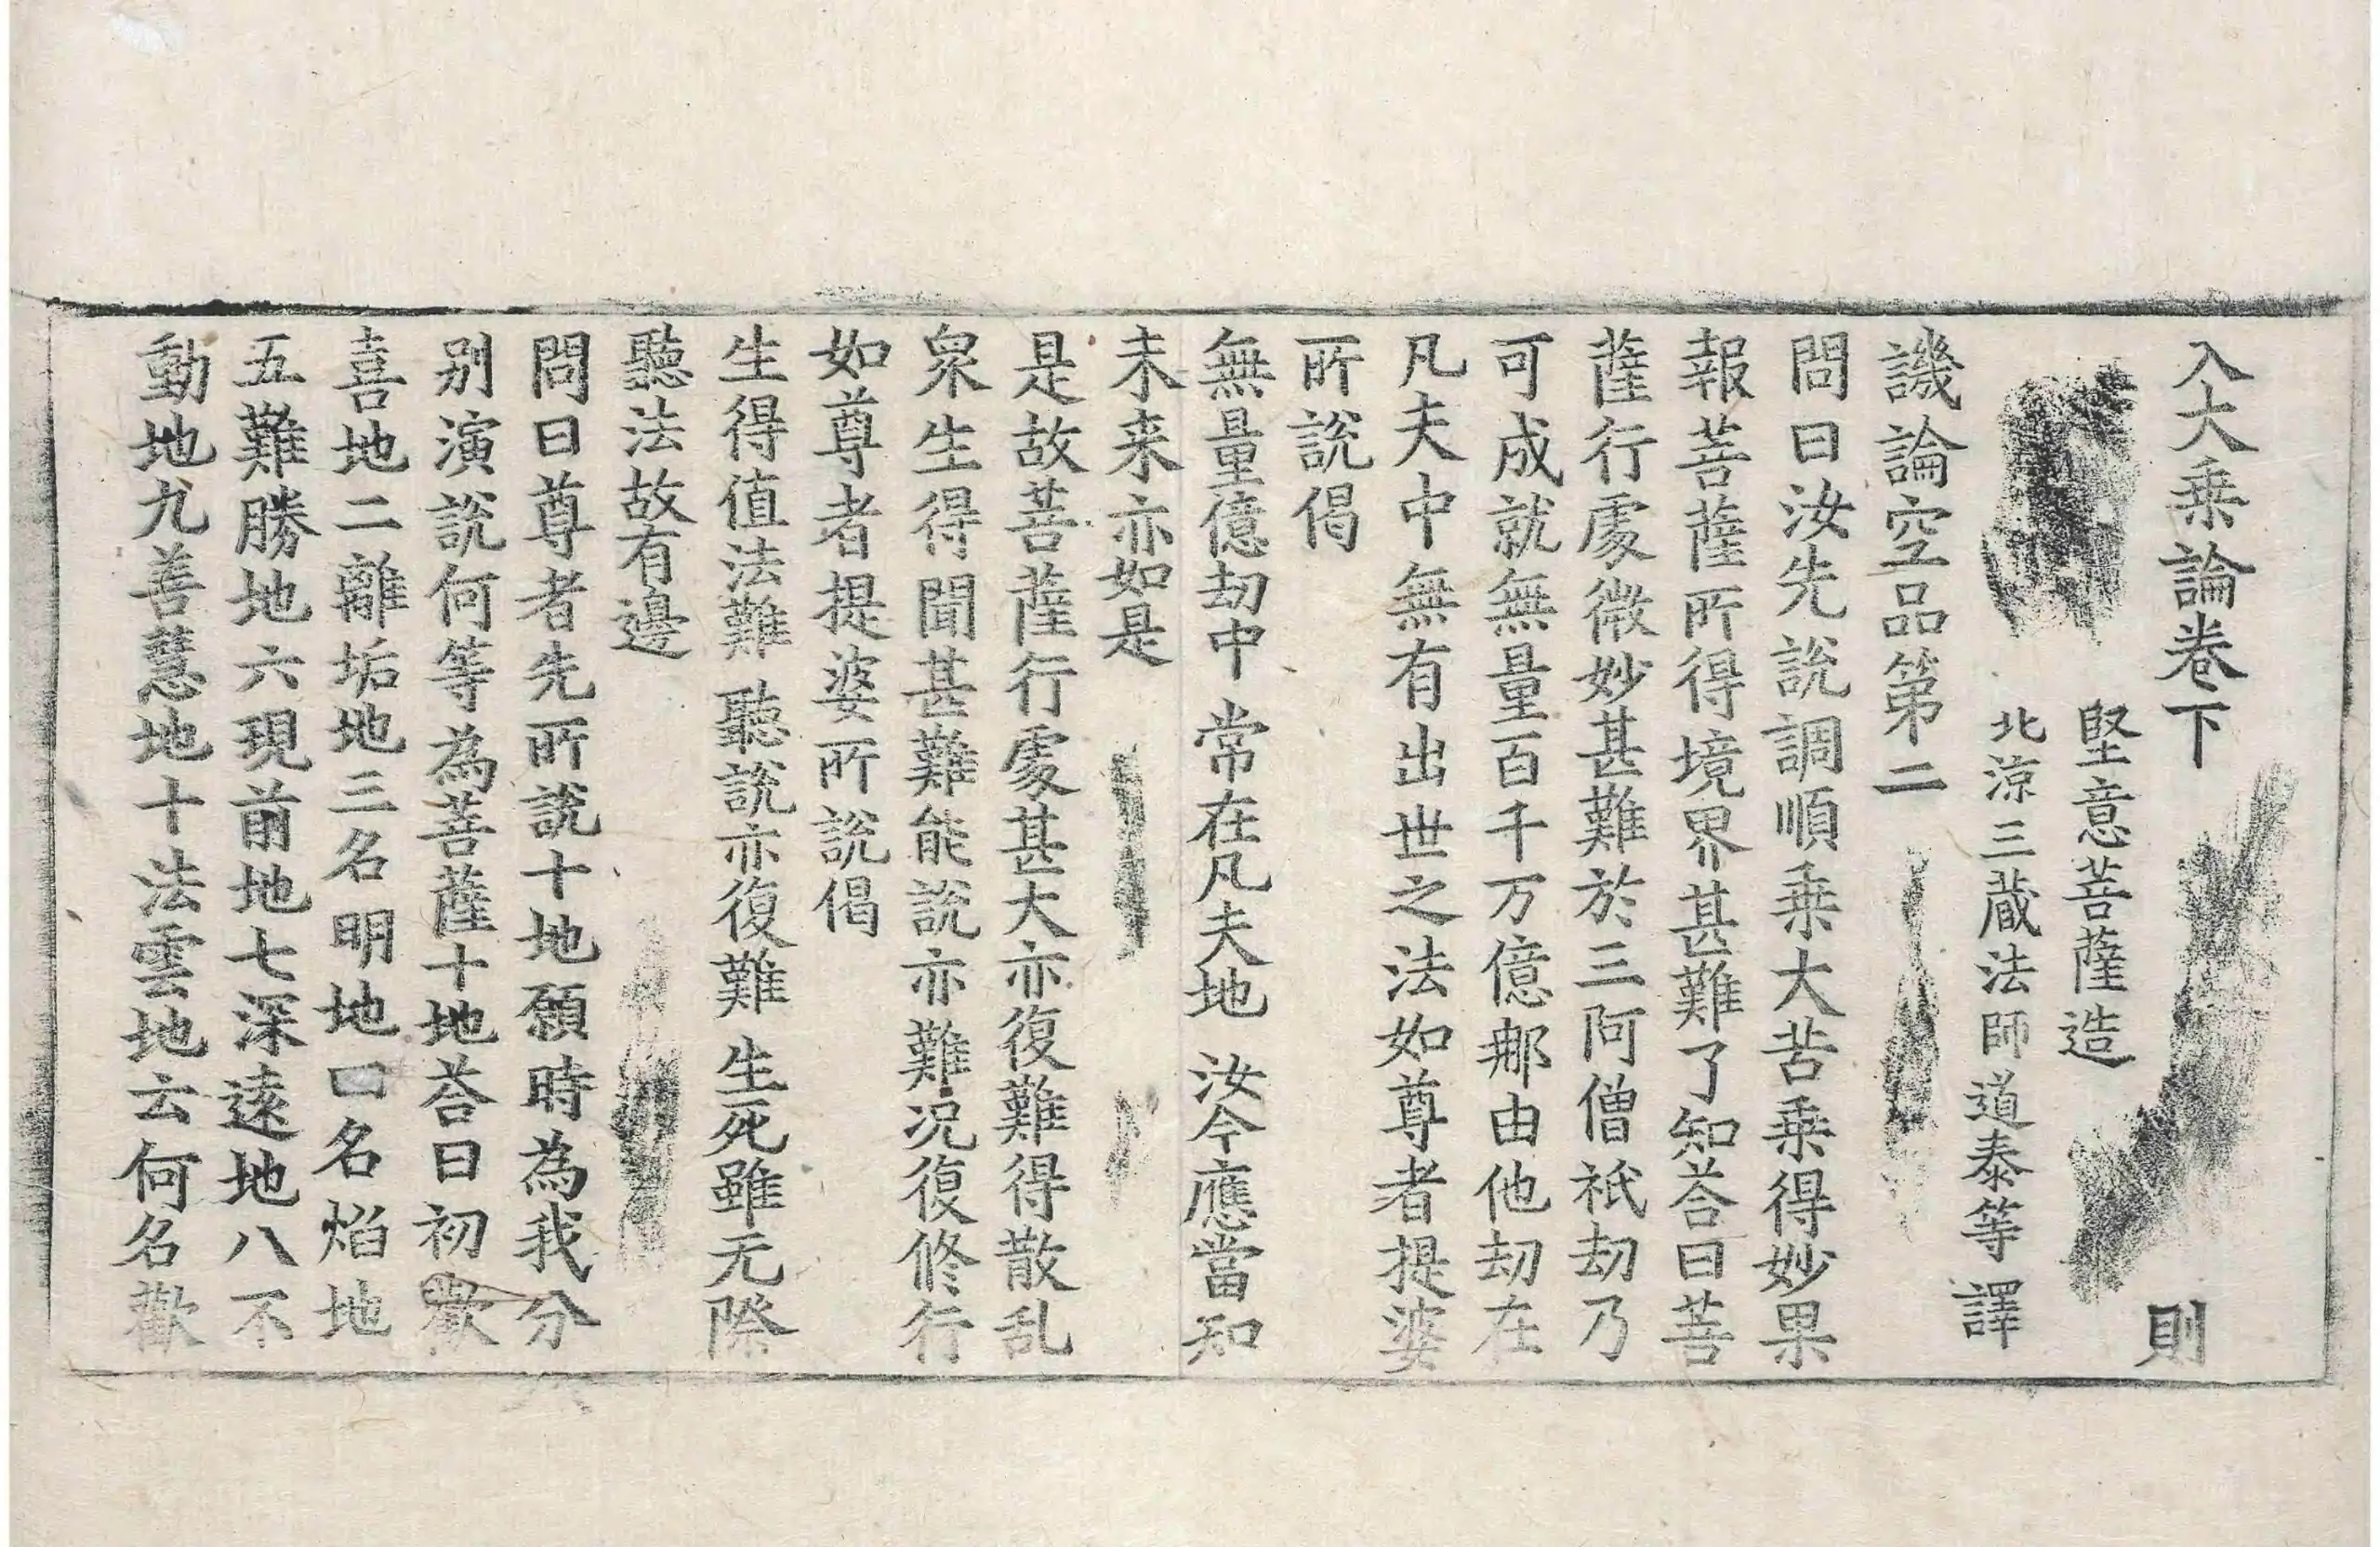 入大乗論卷下 則
堅意菩薩造
北涼三藏法師道泰等譯
譏論空品第二
問曰汝先説調順乗大苦乗得妙果
報菩薩所得境界甚難了知荅曰菩
薩行處微妙甚難於三阿僧祇劫乃
可成就無量百千万億那由他劫在
凡夫中無有出世之法如尊者提婆
所説偈
無量億劫中 常在凡夫地 汝今應當知
未来亦如是
是故菩薩行處甚大亦復難得散乱
衆生得聞甚難能説亦難况復修行
如尊者提婆所説偈
生得值法難 聽説亦復難 生死雖无際
聽法故有邊
問曰尊者先所説十地願時為我分
别演説何等為菩薩十地荅曰初歡
喜地二離垢地三名明地四名焰地
五難勝地六現前地七深遠地八不
動地九善慧地十法雲地云何名歡